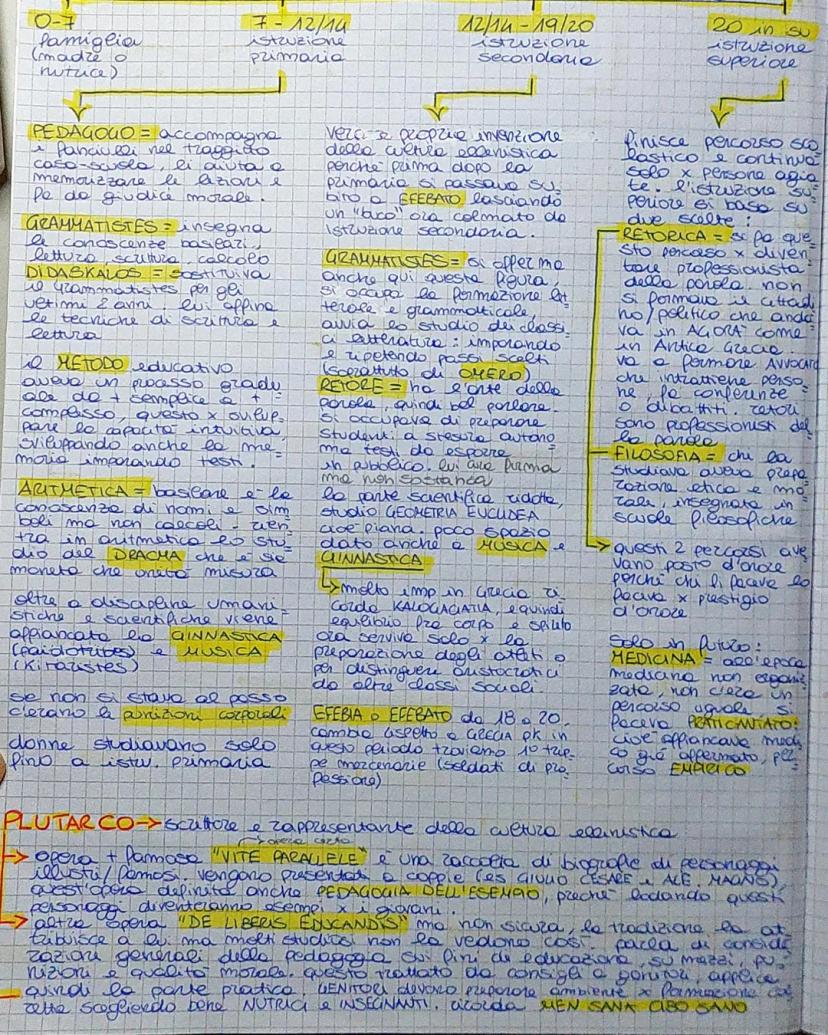 0-7
famiglia
(madre o
nutrice)
7-12/14
istruzione
primaria
12/14-19/20
istruzione
secondaria
20 in su
istruzione
superiore
PEDAGOGO = accompagna
i fanciulli nel traggitto
casa-scuola, li aiuta a
memorizzare le lezioni e
fa da giudice morale.
GRAMMATISTES = insegna
le conoscenze baseari,
lettura, scrittura, calcolo
DIDASKALOS = sostituiva
il grammatistes per gli
ultimi 2 anni. lui affina
le tecniche di scrittura e
lettura
il METODO educativo
aveva un processo gradu
ale da + semplice a +
complesso, questo x svilup-
pare la capacità intuitiva,
sviluppando anche la me-
moria imparando testi.
ARITMETICA = basilare è la
conoscenza di nomi e sim
boli ma non calcoli. rien-
tra in aritmetica lo stu-
dio del DRACMA che è sia
moneta che unità misura
oltre a discipline umani-
stiche e scientifiche viene
affiancata la GINNASTICA
(paidotribes) e MUSICA
(kitaristes)
se non si stava al passo
c'erano le punizioni corporali
donne studiavano solo
fino a istr. primaria
vera e propria invenzione
della cultura ellenistica
perché prima dopo la
primaria si passava su-
bito a EFEBATO lasciando
un "buco" ora colmato da
istruzione secondaria.
GRAMMATISTES = si afferma
anche qui questa figura,
si occupa la formazione let
terale e grammatticale,
avvia lo studio dei classi
ci letteratura: imparando
e ripetendo passi scelti
(soprattuto di OMERO)
RETORE = ha l'arte della
parola, quindi bel parlare.
si occupava di preparare
studenti a stesura autono
ma testi da esporre
in pubblico. lui era forma
ma non sostanza
la parte scientifica ridotta,
studio GEOMETRIA EUCLIDEA
cioè piana. poco spazio
dato anche a MUSICA e
GINNASTICA
molto imp in Grecia ri-
corda KALOGAGATIA, equindi
equilibrio fra corpo e spirito
ora serviva solo x la
preparazione degli atleti o
per distinguere aristocratici
da altre classi sociali.
EFEBIA o EFEBATO da 18 a 20.
cambia aspetto a GRECIA pk in
questo periodo troviamo 1° trup-
pe mercenarie (soldati di pro-
fessione)
finisce percorso sco-
lastico e continua
solo x persone agia-
te. l'istruzione su-
periore si basa su
due scelte:
RETORICA = si fa que-
sto percorso x diven-
tare professionista
della parola. non
si formava il cittadi
no/politico che anda
va in AGORÀ come
in Antica Grecia.
va a formare AVVOCATI
che intrattiene perso-
ne, fa conferenze
o dibattiti. retori
sono professionisti del-
la parola
FILOSOFIA = chi la
studiava aveva prepa-
razione etica e mo-
rale, insegnata in
scuole filosofiche
questi 2 percorsi ave-
vano posto d'onore
perché chi li faceva lo
faceva x prestigio
d'onore
solo in futuro:
MEDICINA = all'epoca
medicina non organiz-
zata, non c'era un
percorso uguale si
faceva PRATICANTATO:
cioè affiancava medi-
co già affermato, per-
corso EMPIRICO
PLUTARCO → scrittore e rappresentante della cultura ellenistica
opera certa
opera + fammosa "VITE PARALLELE" è una raccolta di biografie di personaggi
illustri/famosi. vengono presentati a coppie (es GIULIO CESARE e ALE. MAGNO),
quest'opera definita anche PEDAGOGIA DELL'ESEMPIO, preché lodando questi
personaggi diventeranno esempi x i giovani.
altra opera "DE LIBERIS EDUCANDIS" ma non sicura, la tradizione la at-
tribuisce a lui ma molti studiosi non la vedono così. parla di conside
razioni generali della pedagogia sui fini di educazione, su mezzi, pu-
nizioni e qualità morale. questo trattato da consigli a genitori, applica
quindi la parte pratica, GENITORI devono preparare ambiente x formazione cor
retta scegliendo bene NUTRICI e INSEGNANTI. ricorda MEN SANA CIBO SANO